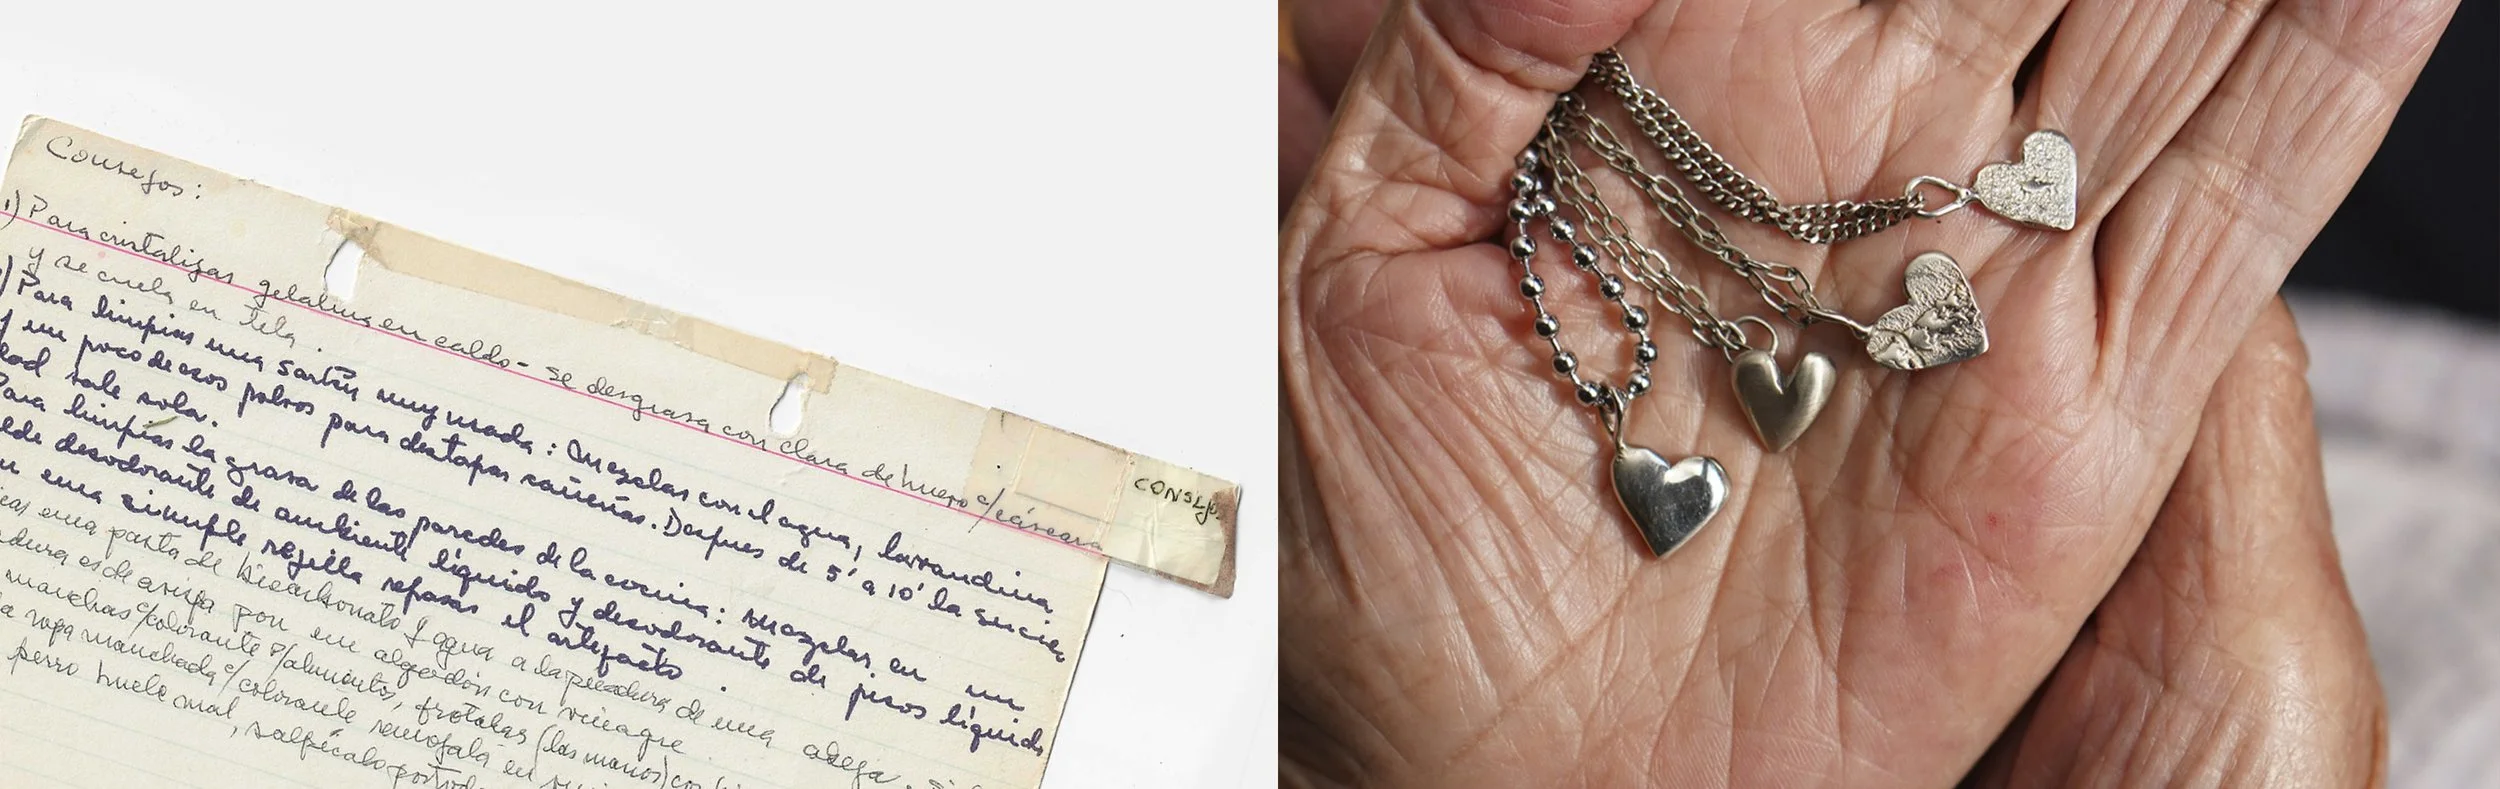 Consejos:
CONSEJO
1) Para cristalizar gelatina en caldo - se desgrasa con clara de huevo c/cáscara
y se cuela en tela.
) Para limpiar una sartén muy usada: Mezclar con el agua, lavandina
y un poco de esos polvos para destapar cañerias. Despues de 5' a 10' la sucie
dad sale sola.
Para limpiar la grasa de las paredes de la cocina: mezclar en un
lde desodorante de ambiente líquido y desodorante de pisos líquido
en una simple rejilla repasar el artefacto.
una pasta de bicarbonato y agua a la picadura de una abeja. Si
dura es de avispa pon en algodón con vinagre
manchas c/colorante p/alimentos, frotalas (las manos) con
la ropa manchada c/colorante remojala en
perro huele mal, salpícalo por tod